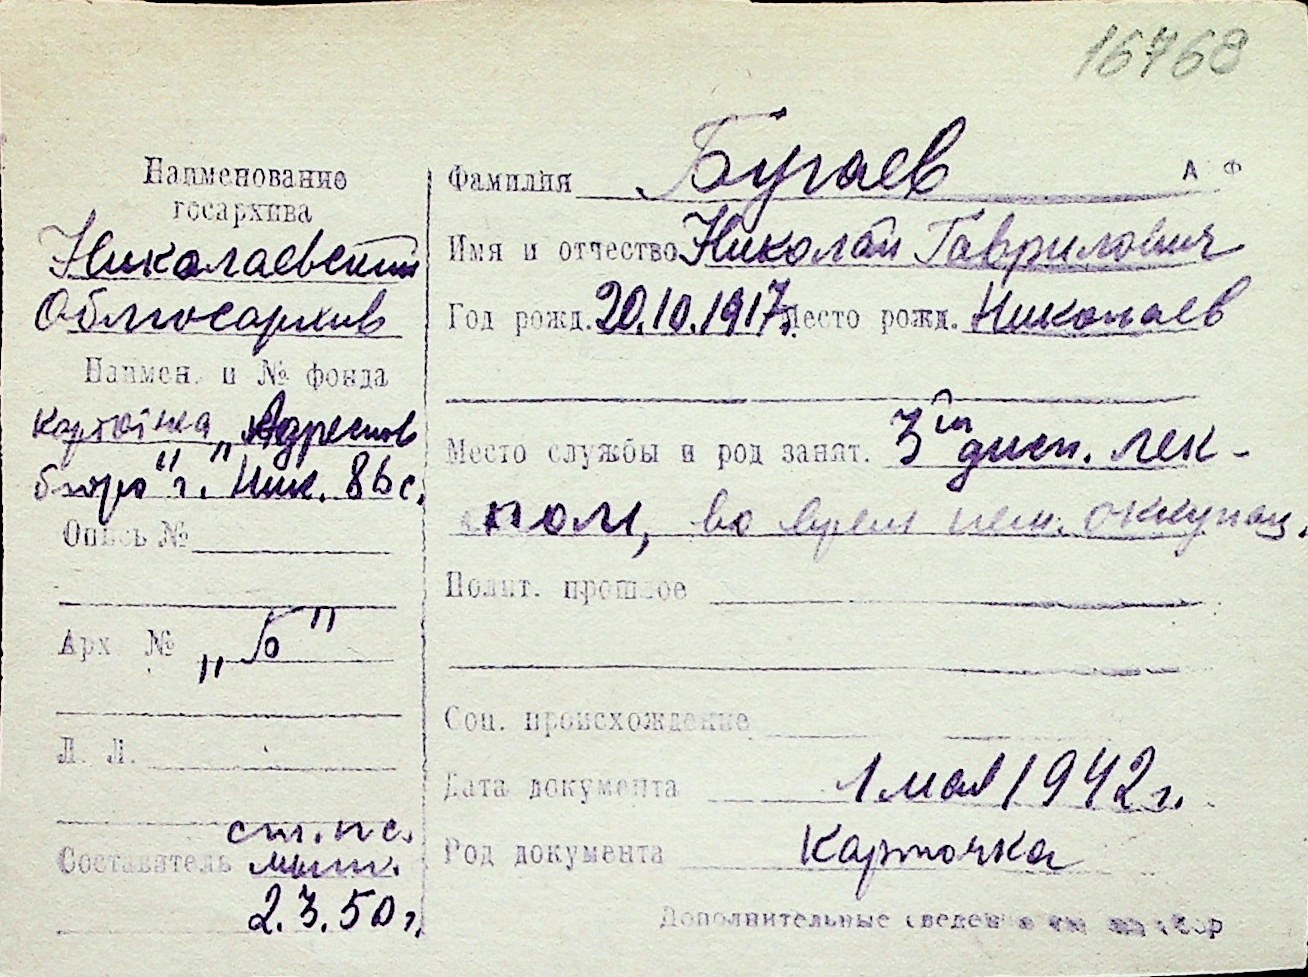 16768
Наименование
госархива
Николаевский
Облгосархив
Наимен. и № фонда
картотека „Адресного
бюро" г. Ник. 86 с.
Опись №
Арх. № „Б"
Л. Л.
ст. н.с.
Составитель
2.3.50 г.
Фамилия Бугаев А Ф
Имя и отчество Николай Гаврилович
Год рожд. 20.10.1917г. Место рожд. Николаев
Место службы и род занят. 3ий дисп. лек-
пом, во время нем. оккупац.
Полит. прошлое
Соц. происхождение
Дата документа 1 мая 1942 г.
Род документа Карточка
Дополнительные сведения